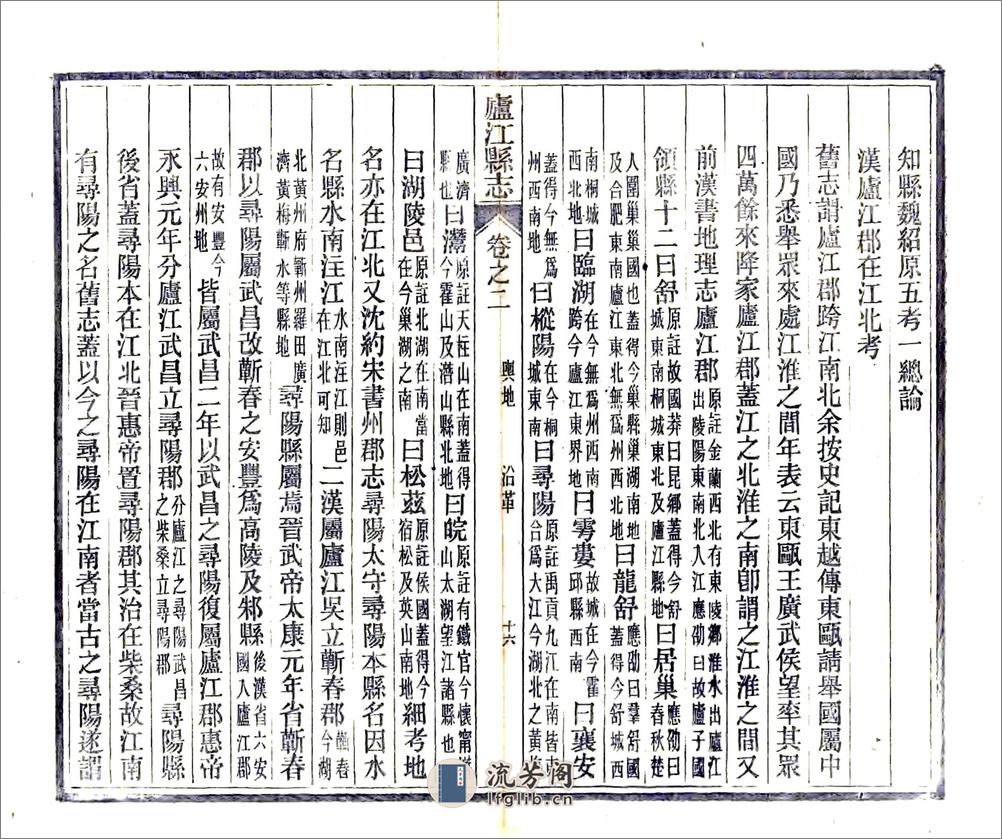 知縣魏紹原五考一總論
漢廬江郡在江北考
舊志謂廬江郡跨江南北余按史記東越傳東甌請舉國屬中
國乃悉舉眾來處江淮之間年表云東甌王廣武侯望率其眾
四萬餘來降家廬江郡蓋江之北淮之南卽謂之江淮之間又
前漢書地理志廬江郡原註金蘭西北有東陵鄉淮水出廬江出陵陽東南北入江應劭曰故廬子國
領縣十二曰舒原註故國莽曰昆鄉蓋得今舒城東南桐城東北及廬江縣地曰居巢應劭曰春秋楚
人圍巢巢國也蓋得今巢縣巢湖南地及合肥東南廬江東北無為州西北地曰龍舒應劭曰羣舒國蓋得今舒城西
南桐城西北地曰臨湖在今無為州西南跨今廬江東界地曰雩婁故城在今霍邱縣西南曰襄安
蓋得今無為州西南地曰樅陽在今桐城東南曰尋陽原註禹貢九江在南皆東合為大江今湖北之黃
廣濟縣也曰灊原註天柱山在南蓋得今霍山及潛山縣北地曰皖原註有鐵官今懷甯潛山太湖望江諸縣也
曰湖陵邑原註北湖在南當在今巢湖之南曰松兹原註侯國蓋得今宿松及英山南地細考地
名亦在江北又沈約宋書州郡志尋陽太守尋陽本縣名因水
名縣水南注江水南注江則邑在江北可知二漢屬廬江吳立蘄春郡蘄春今湖
北黃州府蘄州羅田廣濟黃梅蘄水等縣地尋陽縣屬焉晉武帝太康元年省蘄春
郡以尋陽屬武昌改蘄春之安豐爲高陵及邾縣後漢省六安國入廬江郡
故有安豐今六安州地皆屬武昌二年以武昌之尋陽復屬廬江郡惠帝
永興元年分廬江武昌立尋陽郡分廬江之尋陽武昌之柴桑立尋陽郡尋陽縣
後省蓋尋陽本在江北晉惠帝置尋陽郡其治在柴桑故江南
有尋陽之名舊志蓋以今之尋陽在江南者當古之尋陽遂謂
廬江縣志
卷之二
輿地
沿革
十六
流芳阁
lfglib.cn